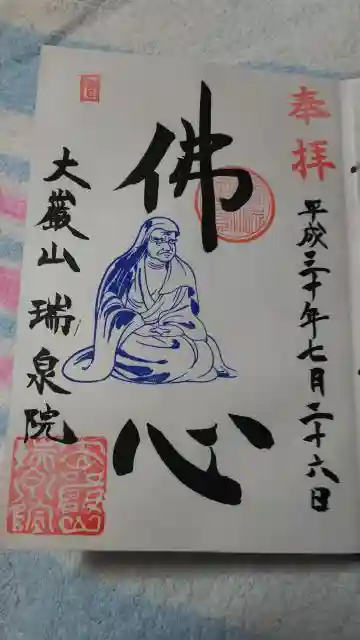 奉拝
平成三十年七月二十六日
佛心
大巌山 瑞泉院